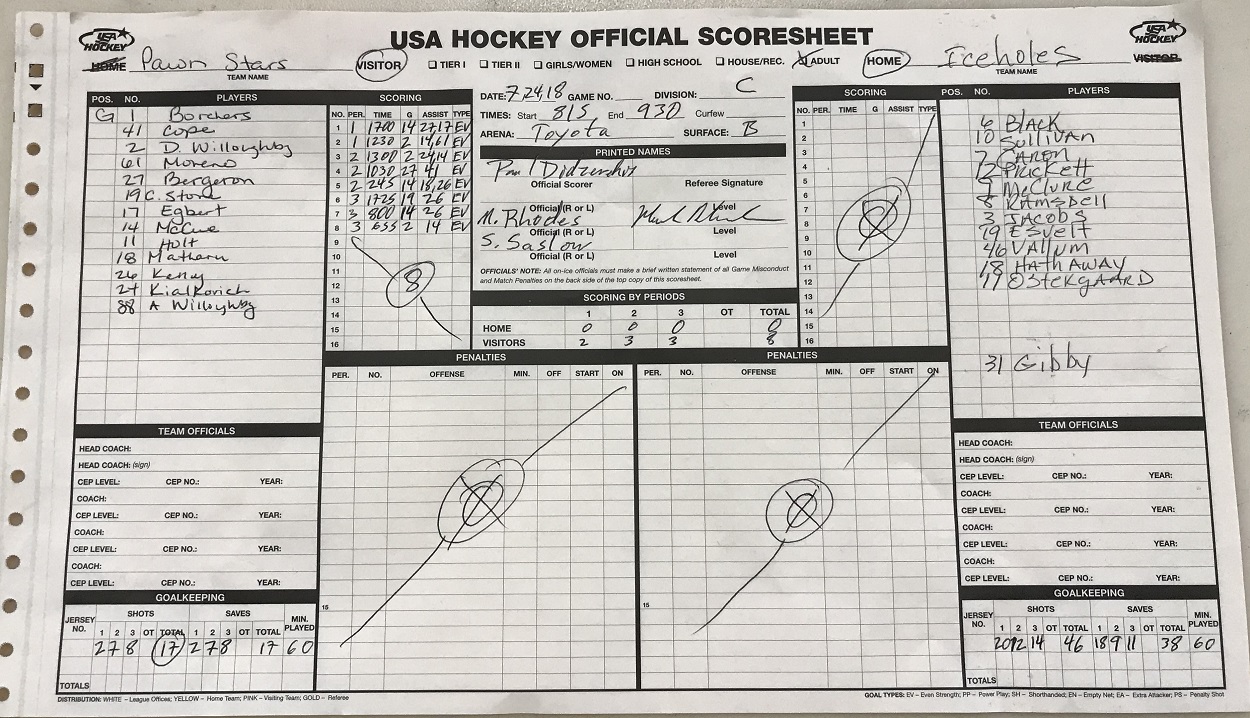 USA HOCKEY OFFICIAL SCORESHEET
USA HOCKEY
USA HOCKEY
HOME Pawn Stars VISITOR
TEAM NAME
TIER I TIER II GIRLS/WOMEN HIGH SCHOOL HOUSE/REC. ADULT
HOME Iceholes VISITOR
TEAM NAME
POS. NO. PLAYERS
G 1 Borchers
41 Cope
2 D. Willoughby
61 Moreno
27 Bergeron
19 C. Stone
17 Egbert
14 McCue
11 Holt
18 Matharu
26 Kenny
24 Kialkovich
88 A Willoughby
SCORING
NO. PER. TIME G ASSIST TYPE
1 1 1700 14 27,17 EV
2 1 1230 2 14,61 EV
3 2 1300 2 24,14 EV
4 2 1030 27 41 EV
5 2 245 14 18,26 EV
6 3 1725 19 26 EV
7 3 800 14 26 EV
8 3 655 2 14 EV
9
10
11
12 8
13
14
15
16
DATE: 7,24,18 GAME NO. DIVISION: C
TIMES: Start 815 End 930 Curfew
ARENA: Toyota SURFACE: B
PRINTED NAMES
Paul
Official Scorer Referee Signature
Official (R or L) Level
M. Rhodes
Official (R or L) Level
S. Saslow
Official (R or L) Level
OFFICIALS' NOTE: All on-ice officials must make a brief written statement of all Game Misconduct
and Match Penalties on the back side of the top copy of this scoresheet.
SCORING BY PERIODS
1 2 3 OT TOTAL
HOME 0 0 0 0
VISITORS 2 3 3 8
SCORING
NO. PER. TIME G ASSIST TYPE
1
2
3
4
5
6
7
8
9
10
11
12
13
14
15
16
POS. NO. PLAYERS
6 BLACK
10 SULLIVAN
7 CARON
12 PRICKETT
9 McCLURE
8 RAMSDELL
3 JACOBS
79 ESVELT
46 VALLUM
18 HATHAWAY
17 OSTERGAARD
31 Gibby
PENALTIES
PER. NO. OFFENSE MIN. OFF START ON
15
PENALTIES
PER. NO. OFFENSE MIN. OFF START ON
15
TEAM OFFICIALS
HEAD COACH:
HEAD COACH: (sign)
CEP LEVEL: CEP NO.: YEAR:
COACH:
CEP LEVEL: CEP NO.: YEAR:
COACH:
CEP LEVEL: CEP NO.: YEAR:
COACH:
CEP LEVEL: CEP NO.: YEAR:
GOALKEEPING
JERSEY NO. SHOTS SAVES MIN. PLAYED
1 2 3 OT TOTAL 1 2 3 OT TOTAL
2 7 8 17 2 7 8 17 60
TOTALS
TEAM OFFICIALS
HEAD COACH:
HEAD COACH: (sign)
CEP LEVEL: CEP NO.: YEAR:
COACH:
CEP LEVEL: CEP NO.: YEAR:
COACH:
CEP LEVEL: CEP NO.: YEAR:
COACH:
CEP LEVEL: CEP NO.: YEAR:
GOALKEEPING
JERSEY NO. SHOTS SAVES MIN. PLAYED
1 2 3 OT TOTAL 1 2 3 OT TOTAL
20 12 14 46 18 9 11 38 60
TOTALS
DISTRIBUTION: WHITE – League Offices; YELLOW – Home Team; PINK – Visiting Team; GOLD – Referee
GOAL TYPES: EV – Even Strength; PP – Power Play; SH – Shorthanded; EN – Empty Net; EA – Extra Attacker; PS – Penalty Shot